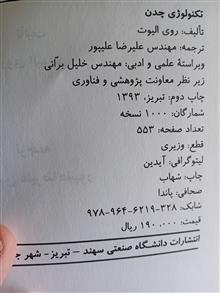 تکنولوژی چدن
تألیف: روی الیوت
ترجمه: مهندس علیرضا علیپور
ویراستهٔ علمی و ادبی: مهندس خلیل یرآنی
زیر نظر معاونت پژوهشی و فناوری
چاپ دوم: تبریز، ۱۳۹۳
شمارگان: ۱۰۰۰ نسخه
تعداد صفحه: ۵۵۳
قطع: وزیری
لیتوگرافی: آیدین
چاپ: شهاب
صحافی: پاندا
شابک: ۳۲۸-۶۲۱۹-۹۶۴-۹۷۸
قیمت: ۱۹۰,۰۰۰ ریال
انتشارات دانشگاه صنعتی سهند – تبریز- شهر